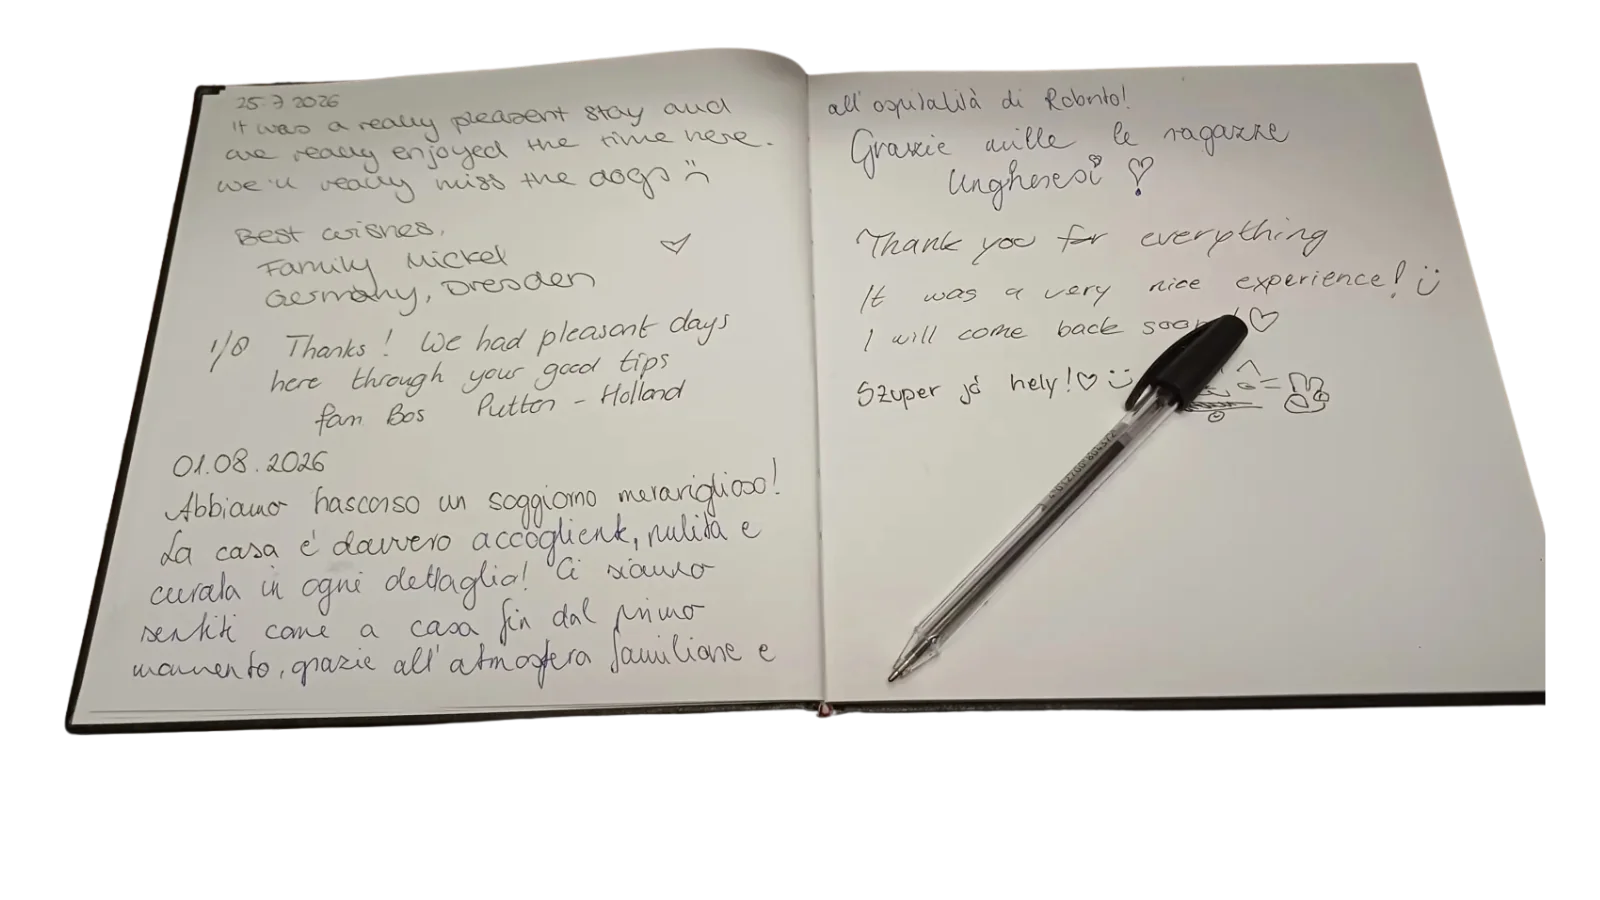 25.7 2026
It was a really pleasent stay and
we really enjoyed the time here.
We'll really miss the dogs :(
Best wishes,
Family Mickel
Germany, Dresden
1/8 Thanks! We had pleasant days
here through your good tips
fam Bos Putten - Holland
01.08.2026
Abbiamo trascorso un soggiorno meraviglioso!
La casa è davvero accogliente, pulita e
curata in ogni dettaglio! Ci siamo
sentiti come a casa fin dal primo
momento, grazie all'atmosfera familiare e
all'ospitalità di Roberto!
Grazie mille le ragazze
Ungheresi ♡
Thank you for everything
It was a very nice experience! :)
I will come back soon! ♡
Szuper jó hely! ♡ :)